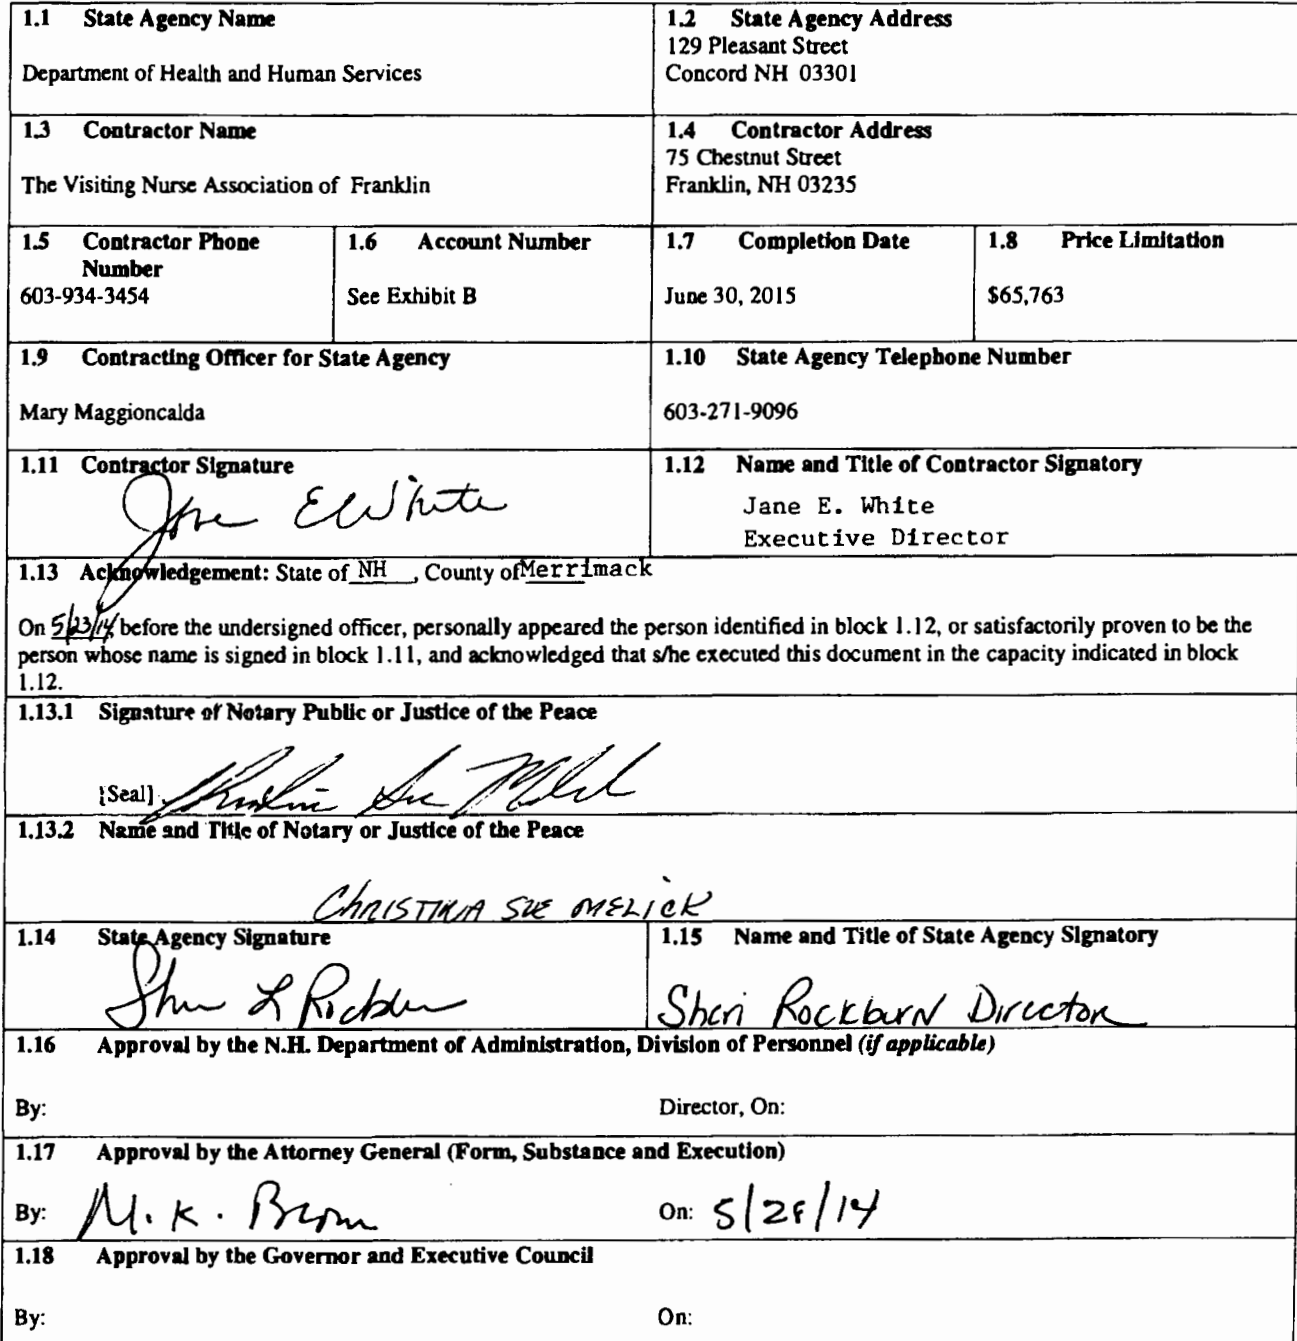 1.1 State Agency Name
Department of Health and Human Services
1.2 State Agency Address
129 Pleasant Street
Concord NH 03301
1.3 Contractor Name
The Visiting Nurse Association of Franklin
1.4 Contractor Address
75 Chestnut Street
Franklin, NH 03235
1.5 Contractor Phone
Number
603-934-3454
1.6 Account Number
See Exhibit B
1.7 Completion Date
June 30, 2015
1.8 Price Limitation
$65,763
1.9 Contracting Officer for State Agency
Mary Maggioncalda
1.10 State Agency Telephone Number
603-271-9096
1.11 Contractor Signature
Jane E White
1.12 Name and Title of Contractor Signatory
Jane E. White
Executive Director
1.13 Acknowledgement: State of NH , County of Merrimack
On 5/23/14, before the undersigned officer, personally appeared the person identified in block 1.12, or satisfactorily proven to be the
person whose name is signed in block 1.11, and acknowledged that s/he executed this document in the capacity indicated in block
1.12.
1.13.1 Signature of Notary Public or Justice of the Peace
[Seal]
1.13.2 Name and Title of Notary or Justice of the Peace
CHRISTINA SUE MELICK
1.14 State Agency Signature
1.15 Name and Title of State Agency Signatory
Sheri Rockburn Director
1.16 Approval by the N.H. Department of Administration, Division of Personnel (if applicable)
By:
Director, On:
1.17 Approval by the Attorney General (Form, Substance and Execution)
By: M. K. Brown
On: 5/28/14
1.18 Approval by the Governor and Executive Council
By:
On: